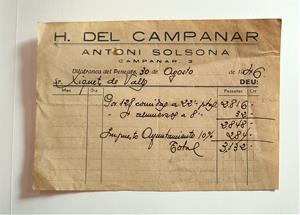 H. DEL CAMPANAR
ANTONI SOLSONA
CAMPANAR, 3
Vilafranca del Penedés, 30 de Agosto de 1946
Sr. Xiquet de Valls DEU:
Mes Dia Pessetes Cts
Por 128 comidas a 22 ptas 2816
4 almuerzos a 8 32
2848
Impuesto Ayuntamiento 10% 284
Total 3,132